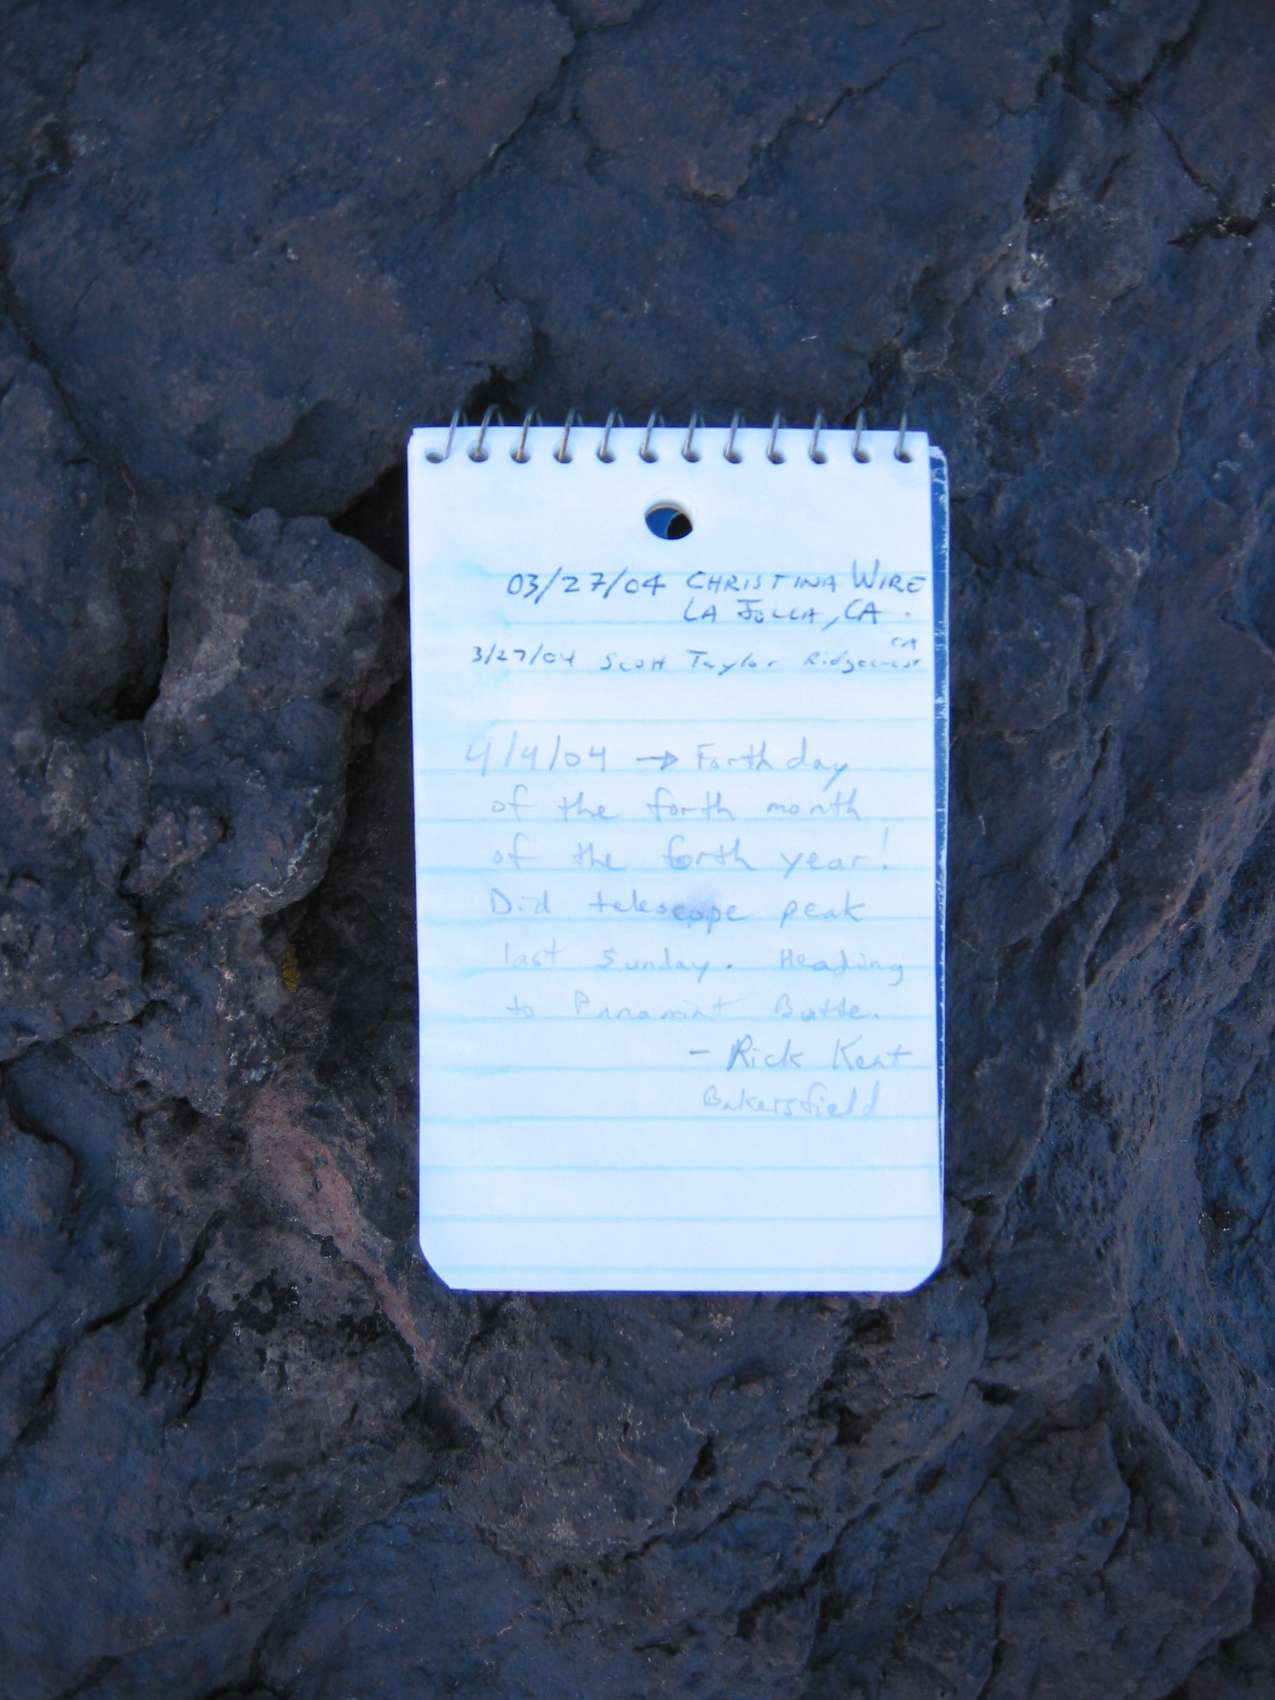 03/27/04 CHRISTINA WIRE
LA JOLLA, CA.
3/27/04 Scott Taylor Ridgecrest CA
4/4/04 → Forth day
of the forth month
of the forth year!
Did telescope peak
last Sunday. Heading
to Panamint Butte.
- Rick Kent
Bakersfield